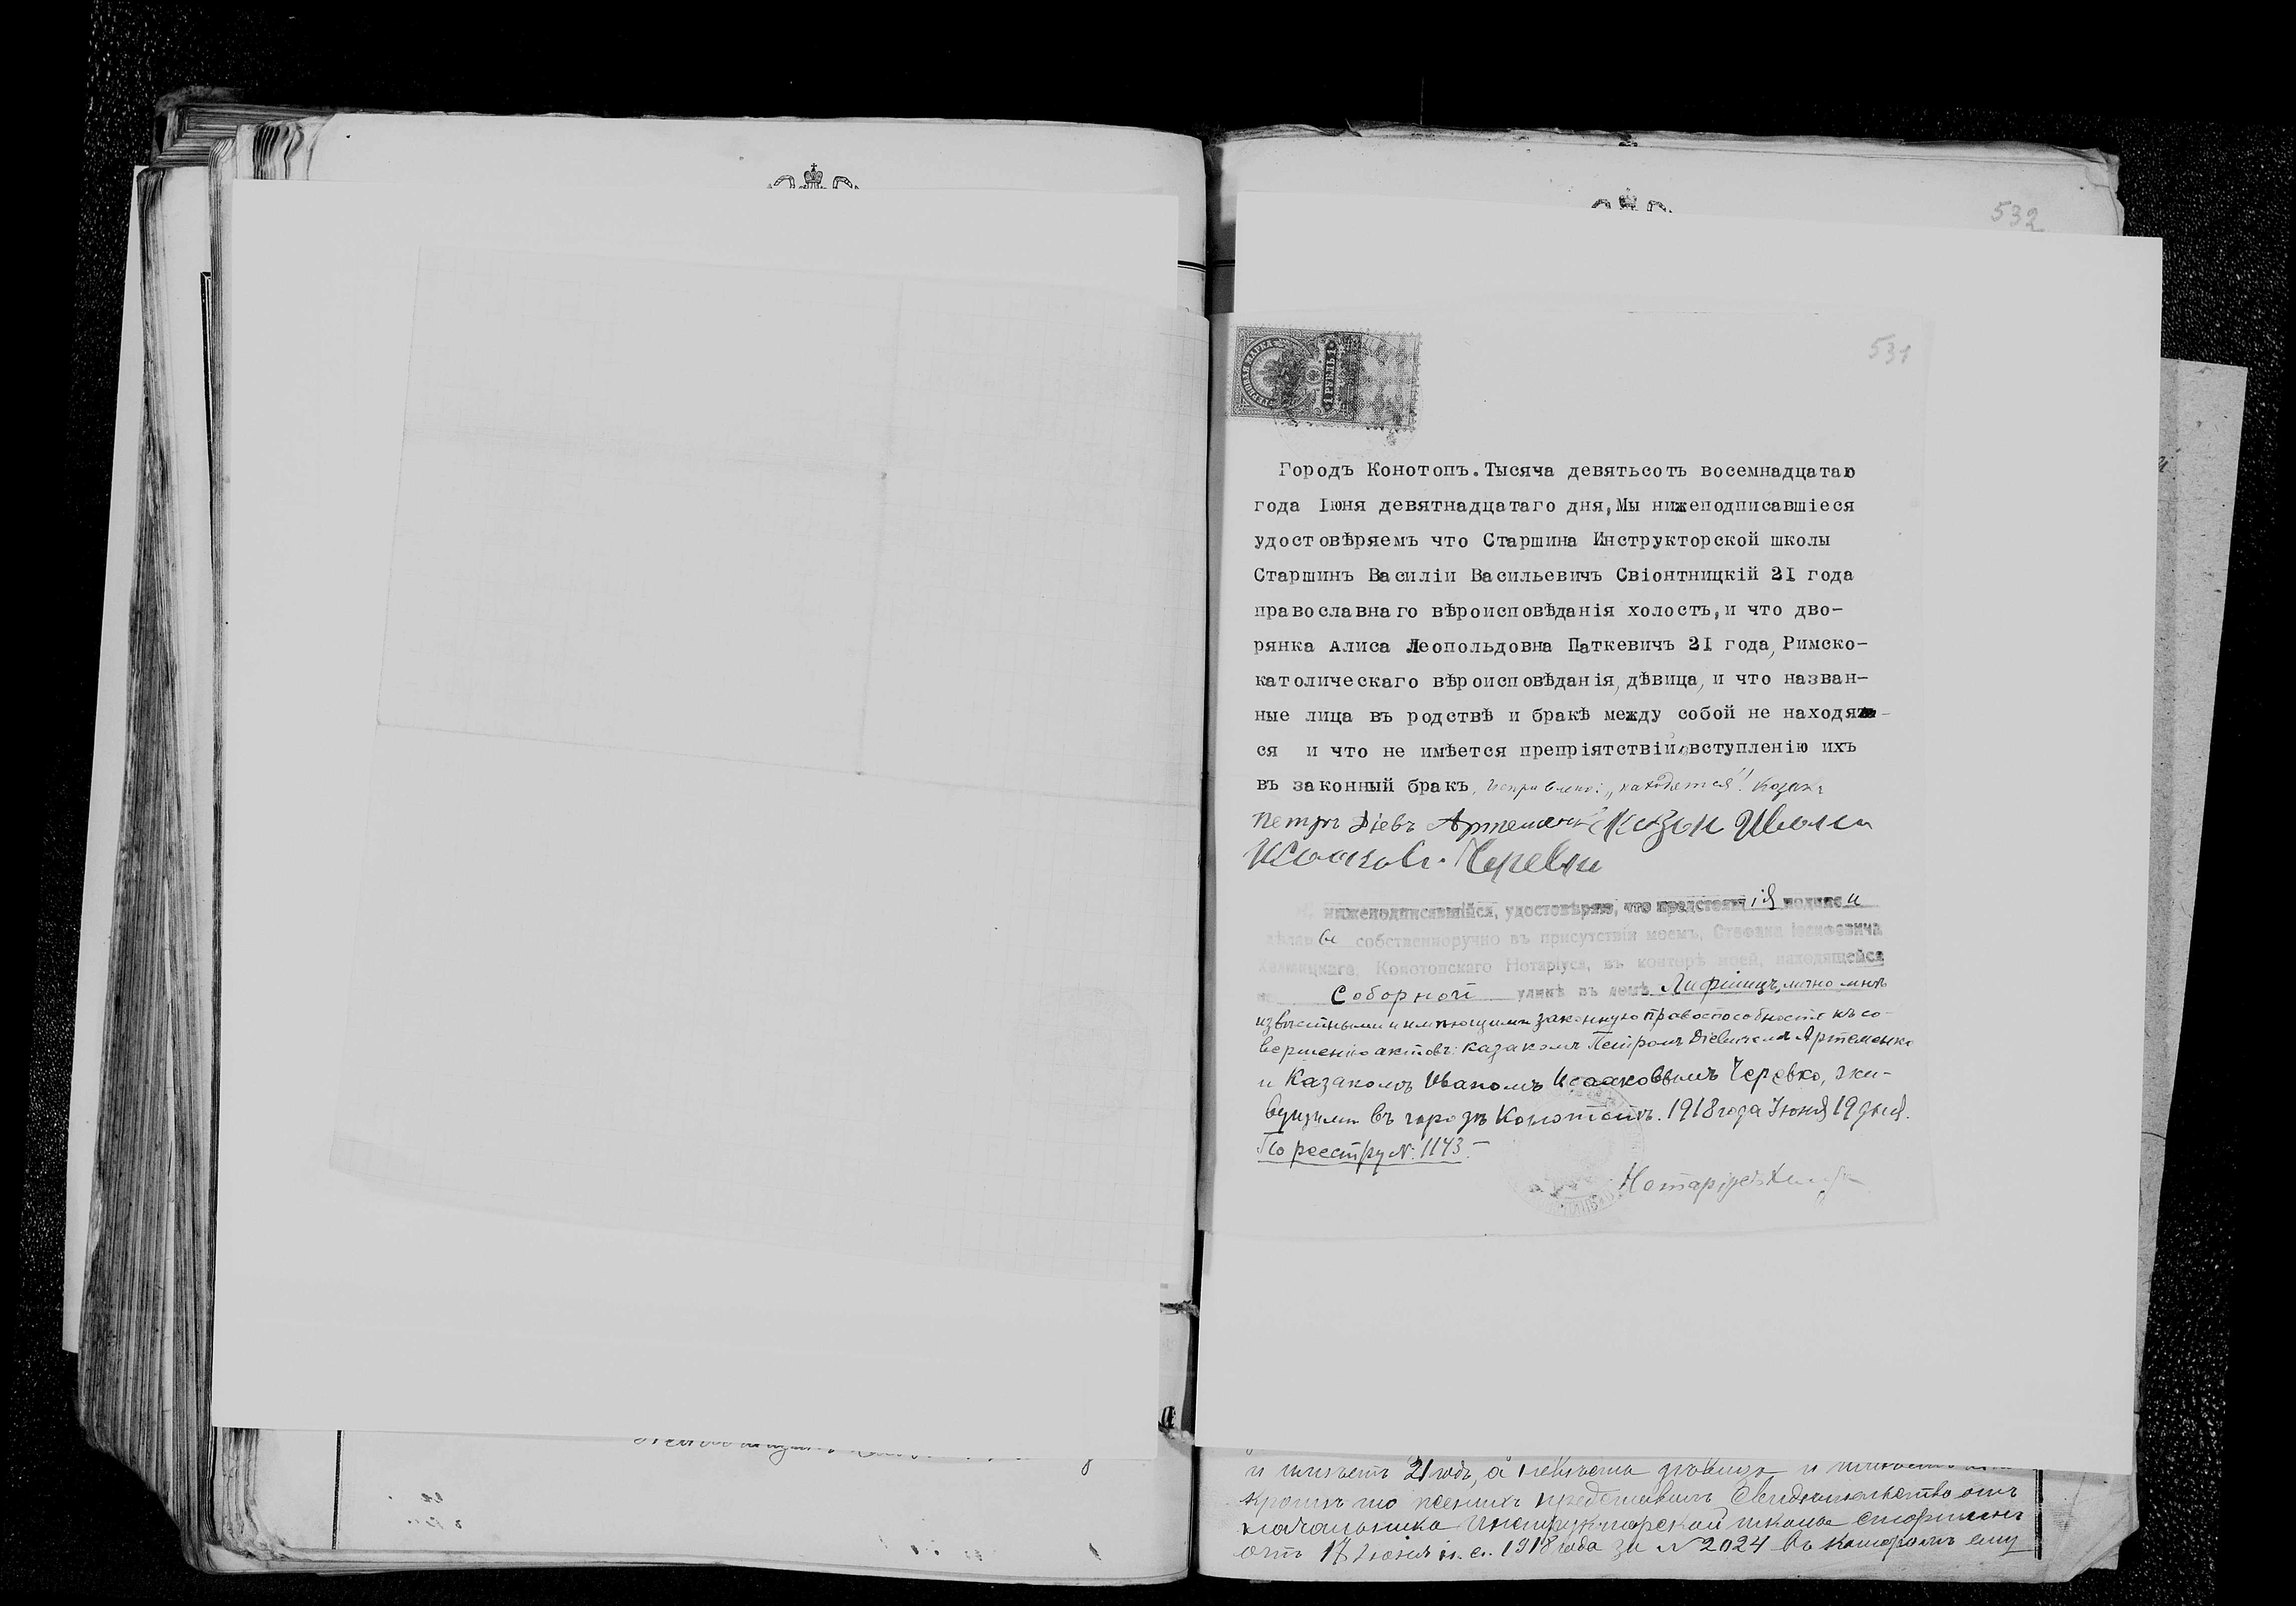 532
531
ГЕРБОВАЯ МАРКА
1 РУБЛЬ 1
Городъ Конотопъ.Тысяча девятьсотъ восемнадцатаго
года Іюня девятнадцатаго дня,Мы нижеподписавшіеся
удостовѣряемъ что Старшина Инструкторской школы
Старшинъ Василіи Васильевичъ Свіонтницкій 21 года
православнаго вѣроисповѣданія холостъ,и что дво-
рянка Алиса Леопольдовна Паткевичъ 21 года, Римско-
католическаго вѣроисповѣданія, дѣвица, и что назван-
ные лица въ родствѣ и бракѣ между собой не находят-
ся и что не имѣется препріятствій вступленію ихъ
въ законный бракъ, исправлено: „находятся". Козакъ
Петръ Діевъ Артеменко Козак Иван
Исааков. Черевко
нижеподписавшійся, удостовѣряю, что предстоящія подписи
собственноручно въ присутствіи моемъ, Стефана Іосифовича
Конотопскаго Нотаріуса, въ конторѣ моей, находящейся
Соборной улицѣ въ домѣ Лифшицъ, лично мнѣ
извѣстными и имѣющими законную правоспособность къ со-
вершенію актовъ: казакомъ Петромъ Діевичемъ Артеменко
и Казакомъ Иваномъ Исааковымъ Черевко, жи-
вущими въ городѣ Конотопѣ. 1918 года Іюня 19 дня.
По реестру № 1143.
Нотаріусъ
и имѣетъ 21 годъ, а невѣста дѣвица и
кромѣ того женихъ представилъ Свидѣтельство отъ
начальника Инструкторской школы старшинъ
отъ 17 Іюня н. с. 1918 года за № 2024 въ которомъ ему